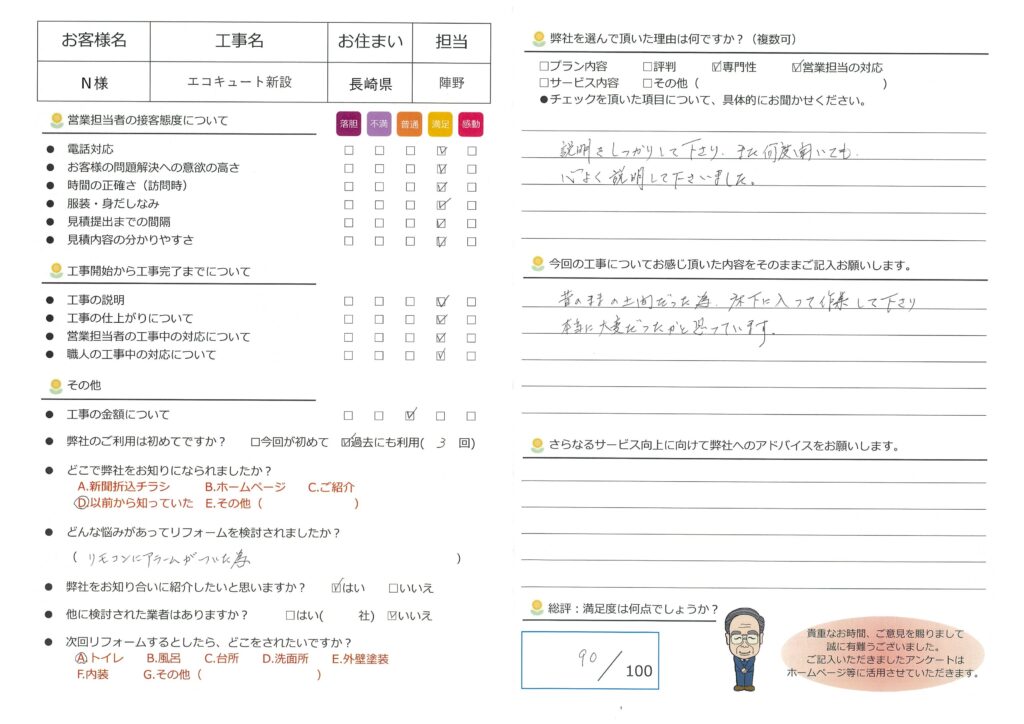 お客様名 工事名 お住まい 担当
N様 エコキュート新設 長崎県 陣野
営業担当者の接客態度について 落胆 不満 普通 満足 感動
● 電話対応 □ □ □ ☑ □
● お客様の問題解決への意欲の高さ □ □ □ ☑ □
● 時間の正確さ（訪問時） □ □ □ ☑ □
● 服装・身だしなみ □ □ □ ☑ □
● 見積提出までの間隔 □ □ □ ☑ □
● 見積内容の分かりやすさ □ □ □ ☑ □
工事開始から工事完了までについて
● 工事の説明 □ □ □ ☑ □
● 工事の仕上がりについて □ □ □ ☑ □
● 営業担当者の工事中の対応について □ □ □ ☑ □
● 職人の工事中の対応について □ □ □ ☑ □
その他
● 工事の金額について □ □ ☑ □ □
● 弊社のご利用は初めてですか？ □今回が初めて ☑過去にも利用( 3 回)
● どこで弊社をお知りになられましたか？
A.新聞折込チラシ B.ホームページ C.ご紹介
D.以前から知っていた E.その他（ ）
● どんな悩みがあってリフォームを検討されましたか？
（ リモコンにアラームがついた為 ）
● 弊社をお知り合いに紹介したいと思いますか？ ☑はい □いいえ
● 他に検討された業者はありますか？ □はい( 社) ☑いいえ
● 次回リフォームするとしたら、どこをされたいですか？
A.トイレ B.風呂 C.台所 D.洗面所 E.外壁塗装
F.内装 G.その他（ ）
弊社を選んで頂いた理由は何ですか？（複数可）
□プラン内容 □評判 ☑専門性 ☑営業担当の対応
□サービス内容 □その他（ ）
●チェックを頂いた項目について、具体的にお聞かせください。
説明をしっかりして下さり、また何度聞いても
心よく説明して下さいました。
今回の工事についてお感じ頂いた内容をそのままご記入お願いします。
昔のままの土間だった為、床下に入って作業して下さり
本当に大変だったかと思っています。
さらなるサービス向上に向けて弊社へのアドバイスをお願いします。
総評：満足度は何点でしょうか？
90/100
貴重なお時間、ご意見を賜りまして
誠に有難うございました。
ご記入いただきましたアンケートは
ホームページ等に活用させていただきます。